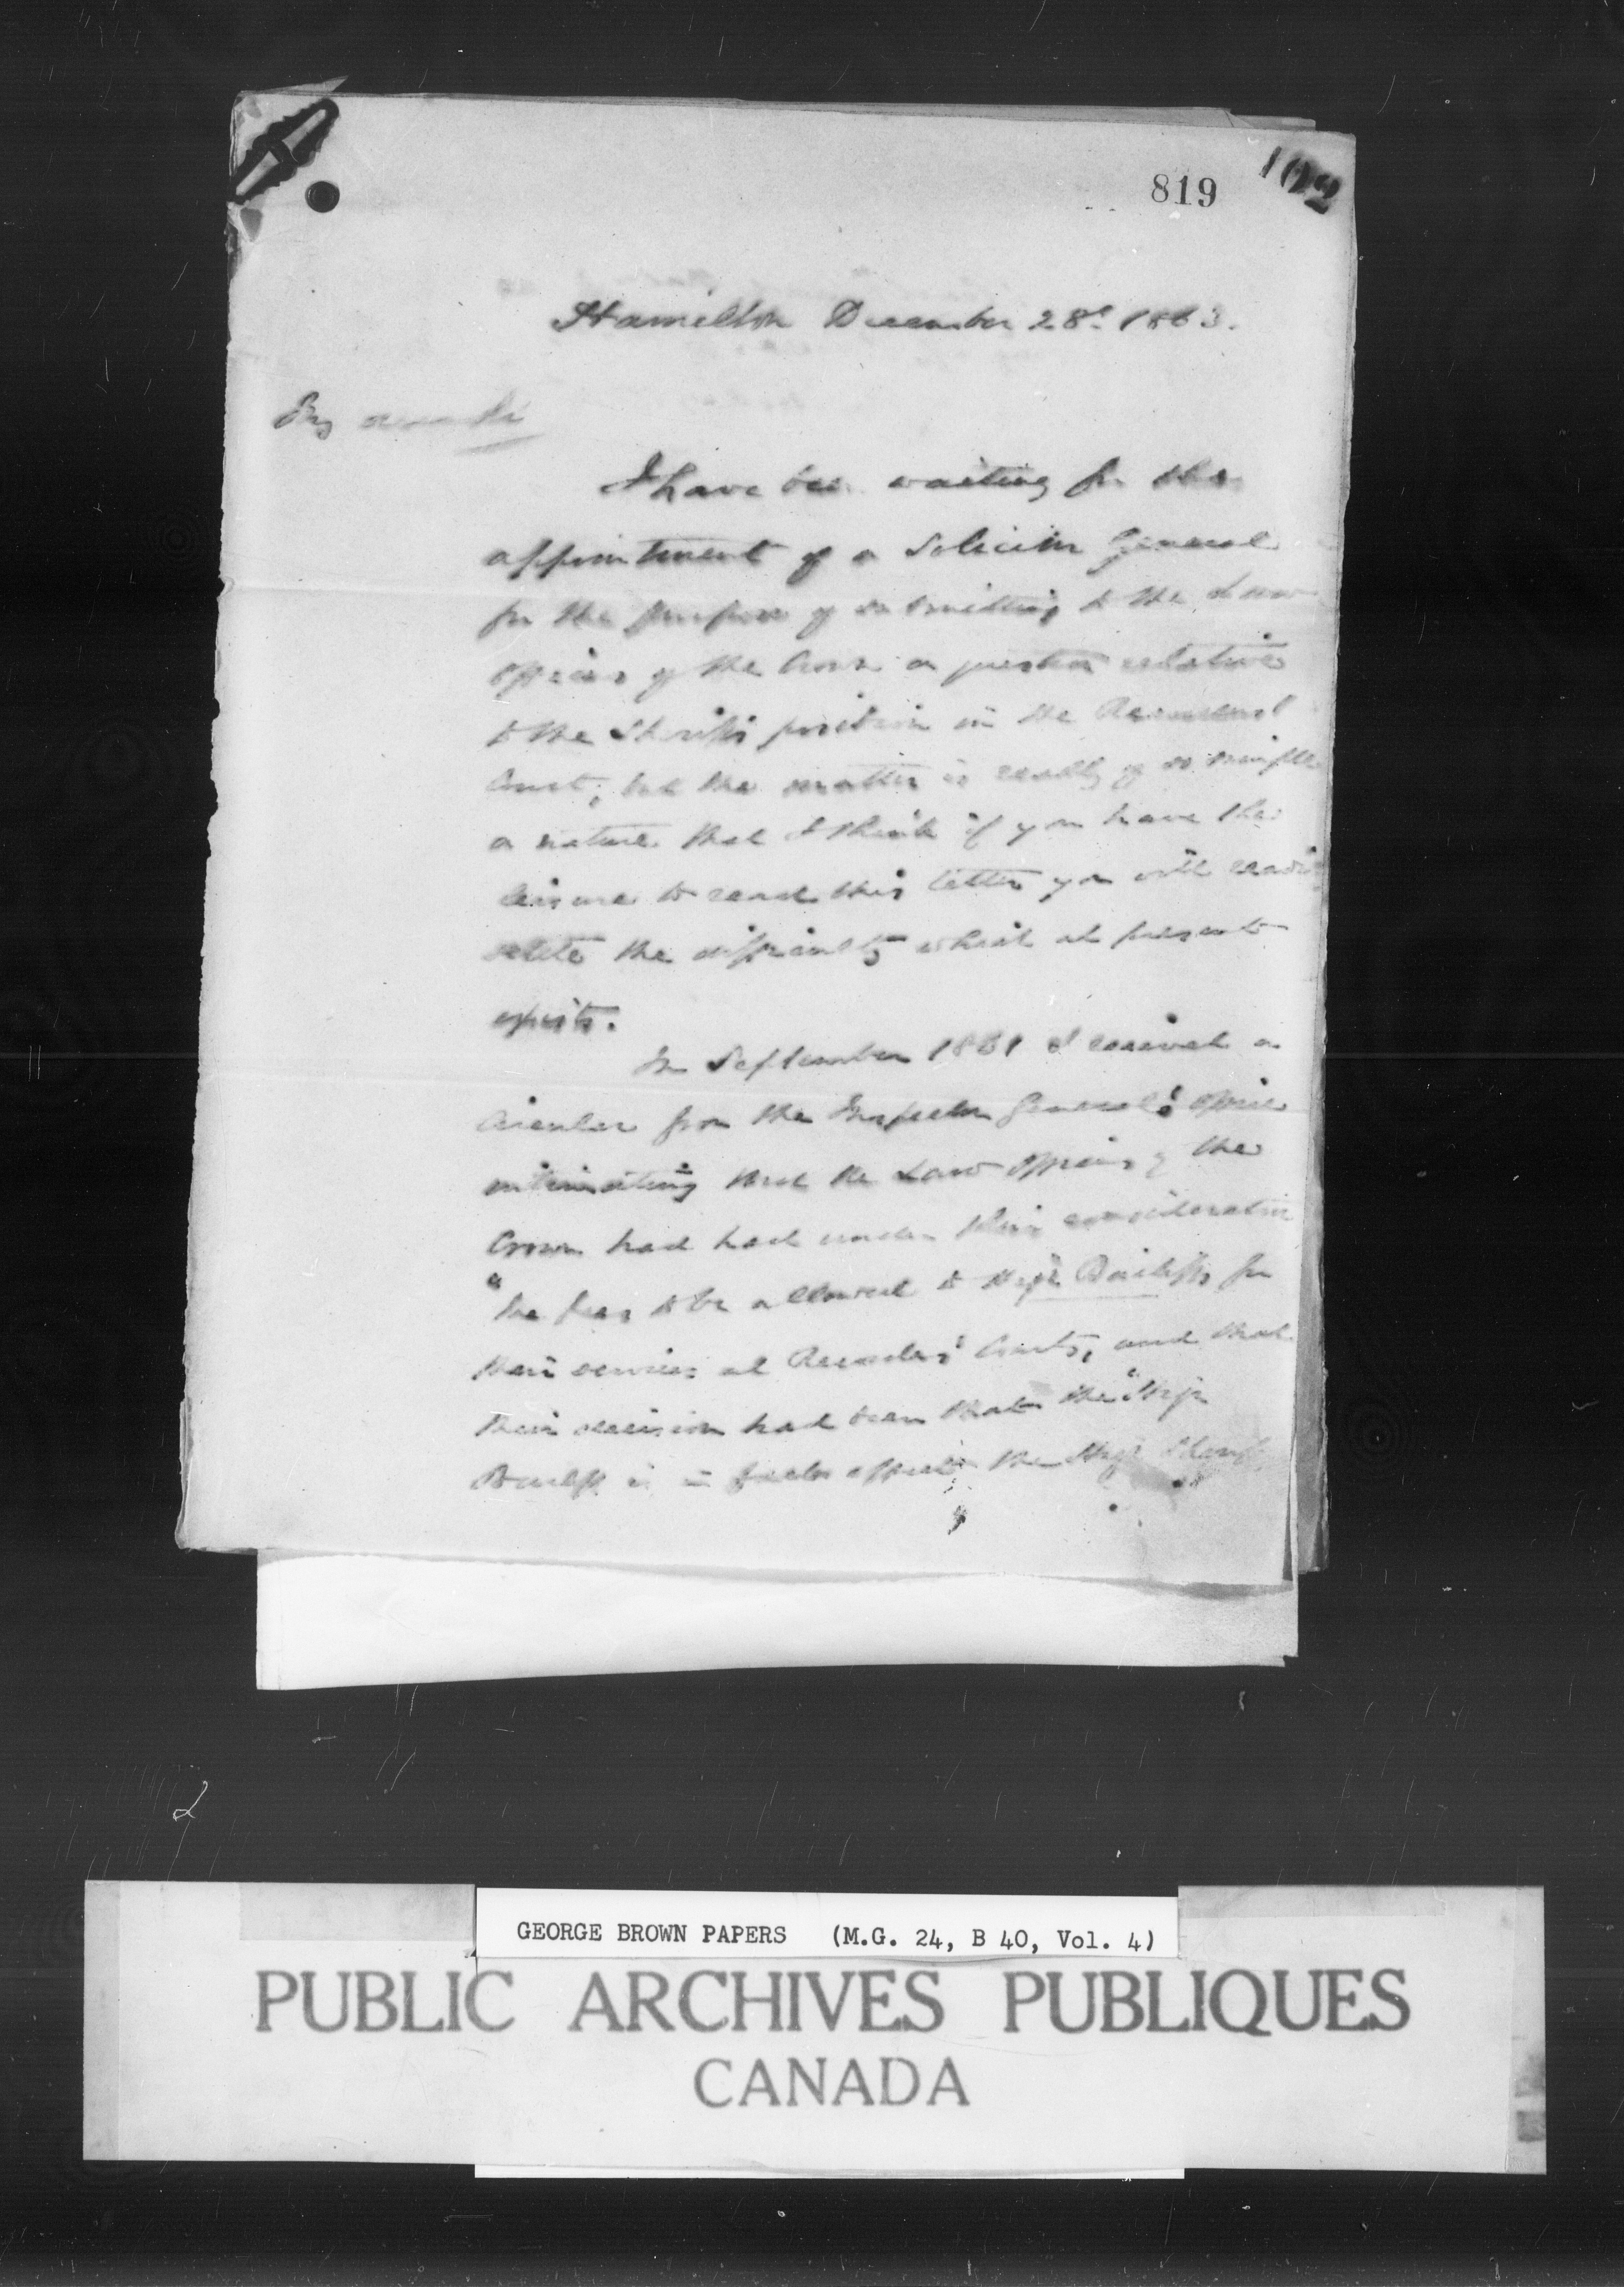 819
102
Hamilton December 28th 1863.
My
I have been waiting for the
appointment of a Solicitor General
for the purpose of submitting to the Law
Officers of the Crown a question relative
to the Sheriffs position in the Recorders'
Court; but the matter is really of so simple
a nature that I think if you have the
leisure to read this letter you will
the difficulty which at present
exists.
In September 1861 I received a
Circular from the Inspector General's Office
intimating that the Law Officers of the
Crown had had under their consideration
"the fees to be allowed to High Bailiffs for
their services at Recorders' Courts, and that
their decision had been that the "High
Bailiff is in the High
GEORGE BROWN PAPERS (M.G. 24, B 40, Vol. 4)
PUBLIC ARCHIVES PUBLIQUES
CANADA